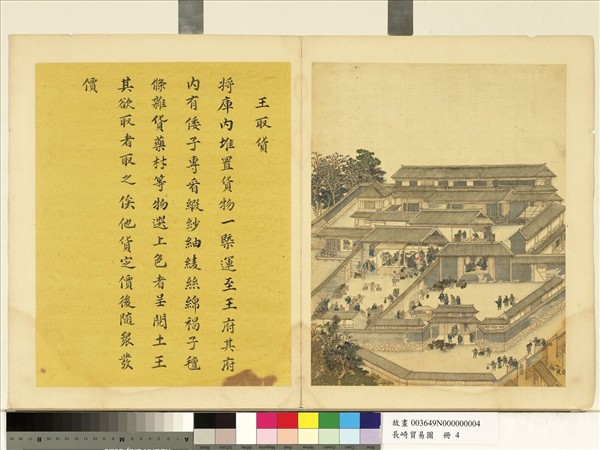 王取貨
將庫内堆置貨物一槩運至王府其府
内有倭子專看緞紗紬綾絲綿褐子氊
條雜貨藥材等物選上色者呈閱土王
其欲取者取之俟他貨定價後隨衆發
價
故畫 003649N000000004
長崎貿易圖 冊 4